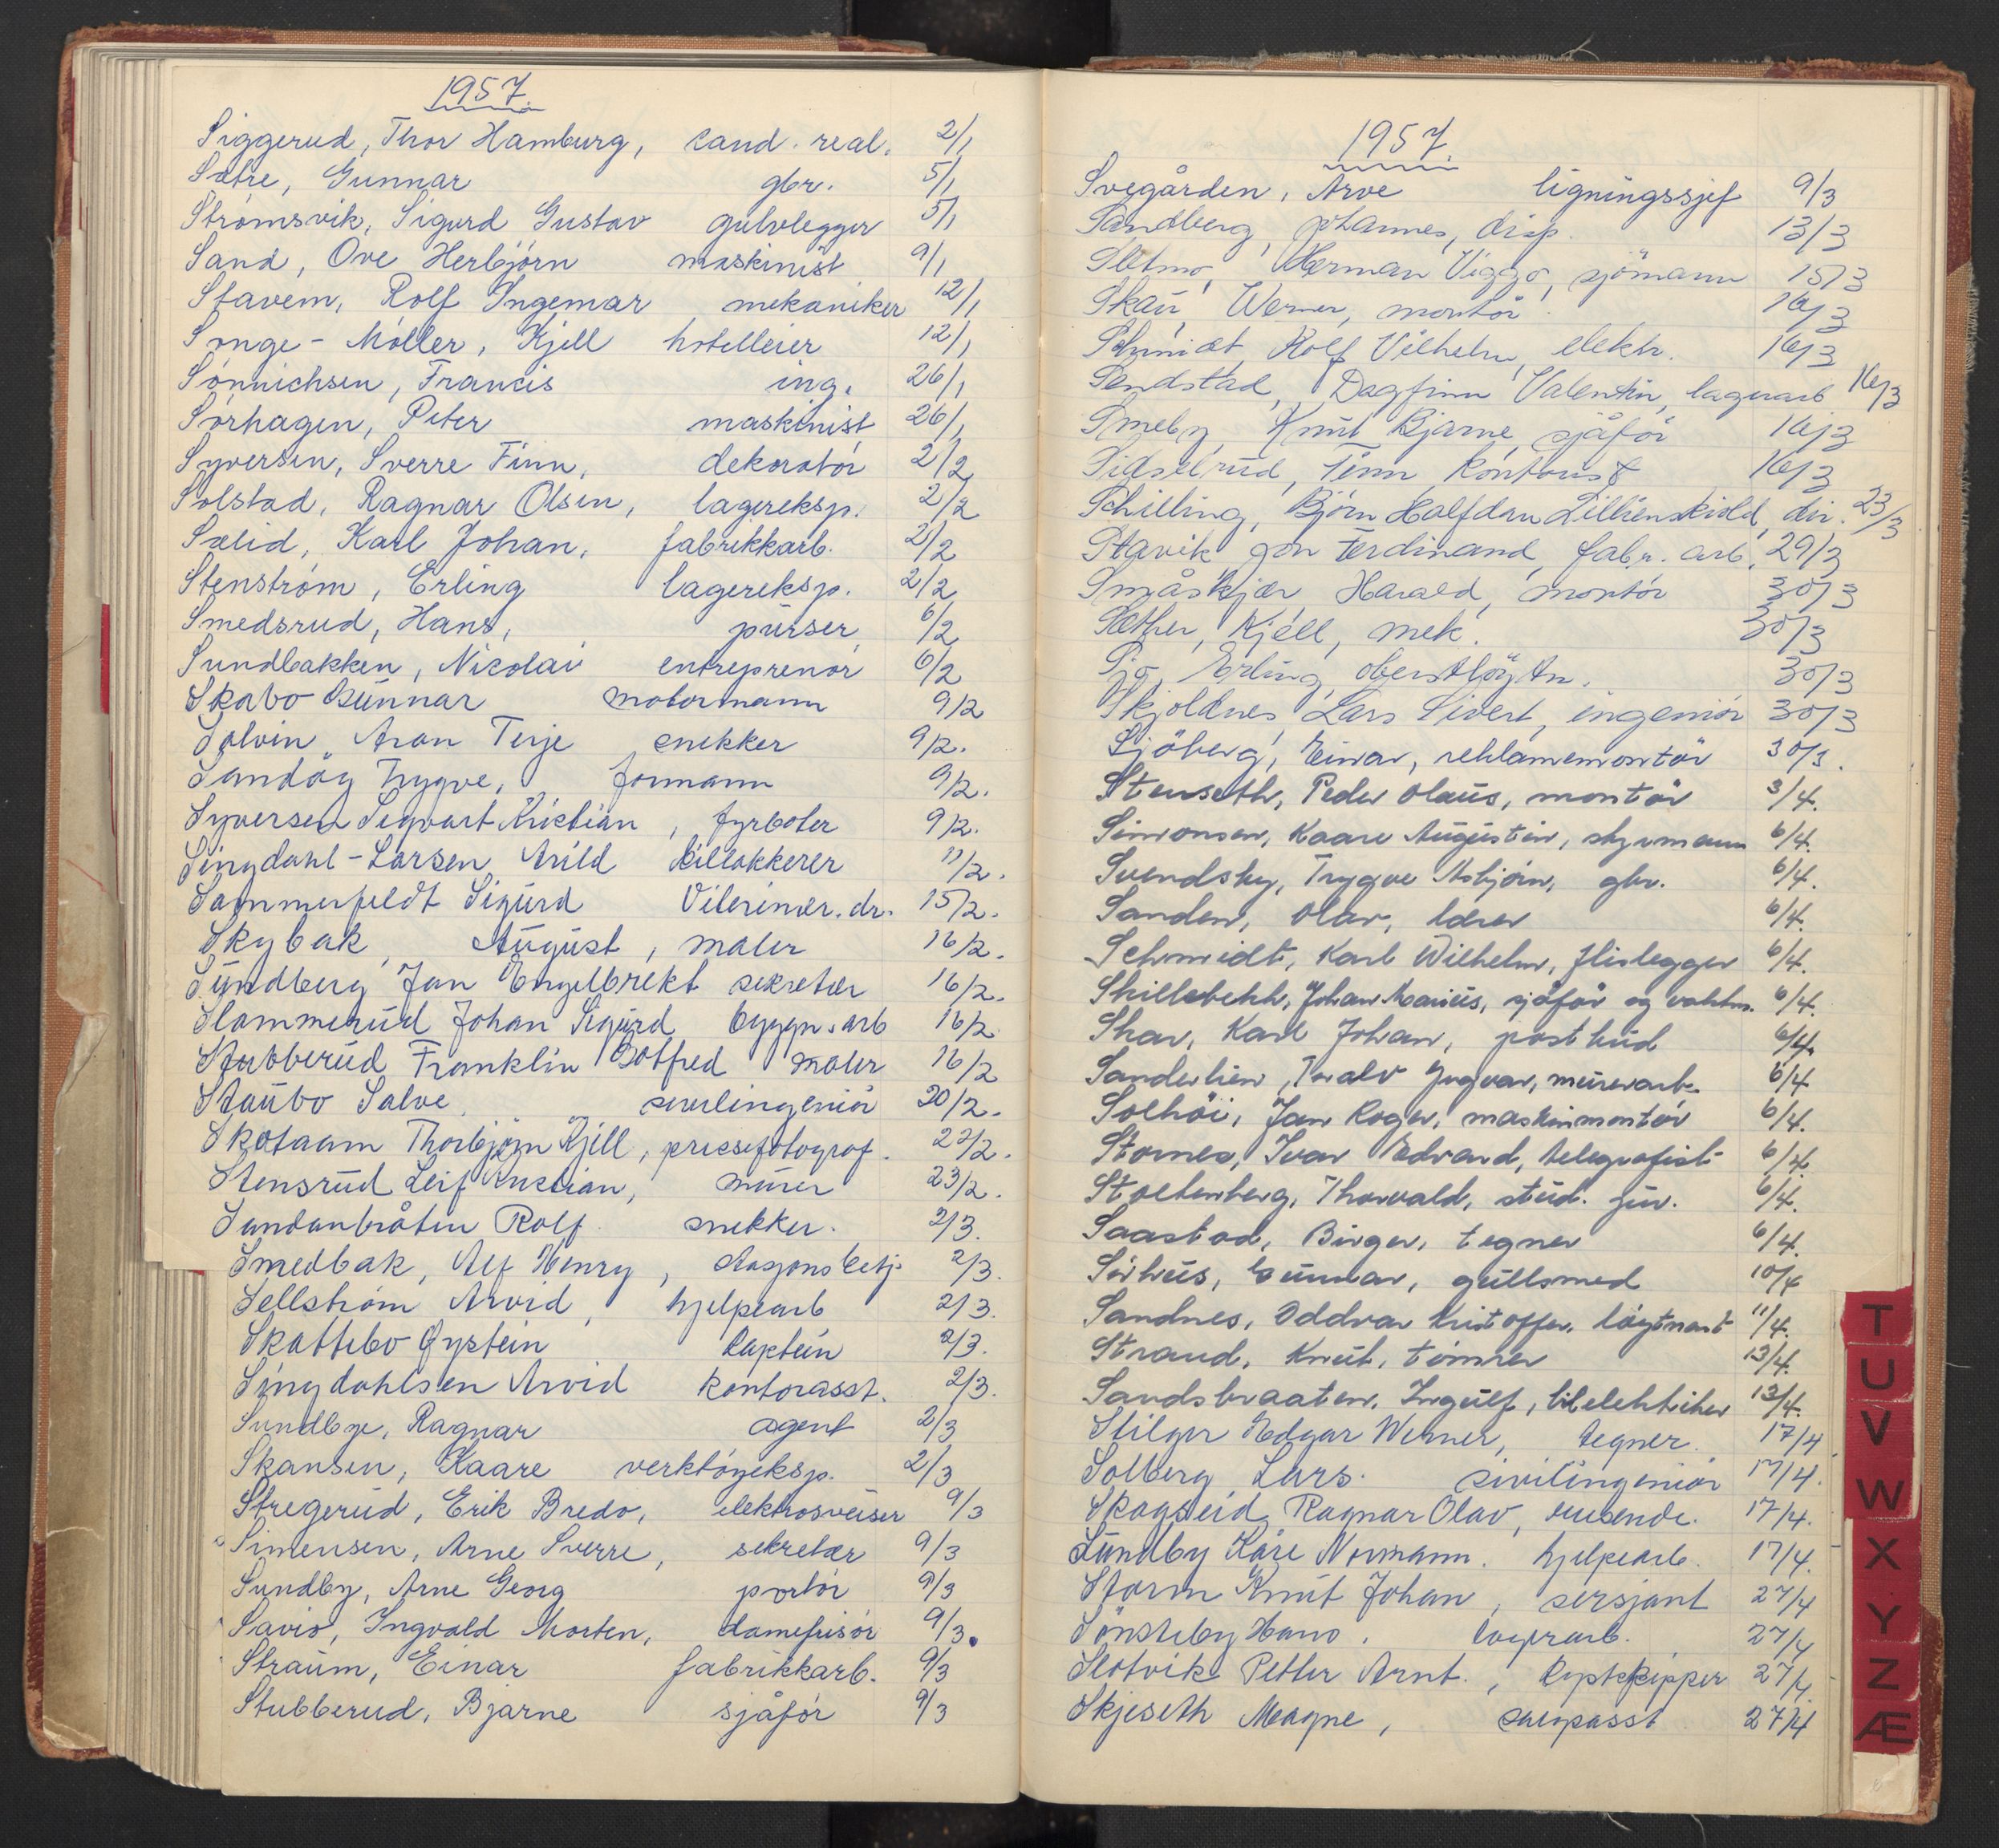 1957.
Siggerud, Thor Hamburg, cand. real. 2/1
Sætre, Gunnar gbr. 5/1
Strømsvik, Sigurd Gustav gulvlegger 5/1
Sand, Ove Herbjörn maskinist 9/1
Stavem, Rolf Ingemar mekaniker 12/1
Songe-Møller, Kjell hotelleier 12/1
Sönnichsen, Francis ing. 26/1
Sørhagen, Peter maskinist 26/1
Syversen, Sverre Finn, dekoratør 2/2
Solstad, Ragnar Olsen, lagereksp. 2/2
Sælid, Karl Johan, fabrikkarb. 2/2
Stenstrøm, Erling lagereksp. 2/2
Smedsrud, Hans, purser 6/2
Sundbakken, Nicolai entreprenør 6/2
Skabo Gunnar motormann 9/2
Solvin, Aron Terje snekker 9/2.
Sandöy Trygve, formann 9/2.
Syversen Sigvart Kristian, fyrbøter 9/2.
Singdahl-Larsen Arild billakkerer 11/2.
Sommerfeldt Sigurd Viterinær. dr. 15/2.
Skybak August, maler 16/2.
Sundberg Jan Engelbrekt sekretær 16/2.
Slommerud Johan Sigurd byggn.arb 16/2.
Stubberud Franklin Gotfred maler 16/2
Staubo Salve sivilingeniör 20/2.
Skotaam Thorbjørn Kjell, pressefotograf. 22/2.
Stensrud Leif Kristian, murer 23/2.
Sandanbråten Rolf snekker. 2/3.
Smedbak, Alf Henry, stasjonsbetj. 2/3.
Sellstrøm Arvid, hjelpearb 2/3.
Skattebo Øystein Kaptein 2/3.
Singdahlsen Arvid kontorasst. 2/3.
Sundbye, Ragnar agent 2/3
Skansen, Kaare verktöyeksp. 2/3
Stregerud, Erik Bredo, elektrosveiser 9/3
Simensen, Arne Sverre, sekretær 9/3
Sundby, Arne Georg portör 9/3
Savio, Ingvald Morten, damefrisør 9/3.
Straum, Einar fabrikkarb. 9/3
Stubberud, Bjarne sjåfør 9/3
1957.
Svegården, Arve ligningssjef 9/3
Sandberg, Johannes, disp. 13/3
Sletmo, Herman Viggo, sjömann 15/3
Skau, Werner, montör 16/3
Schmidt, Rolf Vilhelm, elektr. 16/3
Sendstad, Dagfinn Valentin, lagerarb 16/3
Smeby, Knut Bjarne, sjåför 16/3
Sidselrud, Finn, kontorist 16/3
Schilling, Bjørn Halfdan Lillienskiold, dir. 23/3
Stavik, Jon Ferdinand, fabr. arb. 29/3
Småskjær, Harald, montør 30/3
Sæther, Kjell, mek. 30/3
Sjo, Erling, oberstlöytn. 30/3
Skjoldnes, Lars Sivert, ingeniör 30/3
Sjöberg, Einar, reklamemontör 30/3.
Stenseth, Peder Olaus, montör 3/4.
Simonsen, Kaare Augustin, styrmann 6/4.
Svendsby, Trygve Asbjörn, gbr. 6/4.
Sanden, Olav, lærer 6/4.
Schmidt, Karl Wilhelm, flislegger 6/4.
Skillebekk, Johan Marius, sjåför og vaktm. 6/4.
Skar, Karl Johan, postbud 6/4.
Sanderlien, Toralv Yngvar, murerarb. 6/4
Solhöi, Jan Roger, maskinmontör 6/4.
Stornes, Ivar Edvard, telegrafist 6/4.
Stoltenberg, Thorvald, stud. jur. 6/4.
Saastad, Birger, tegner 6/4.
Sörhus, Gunnar, gullsmed 10/4
Sandnes, Oddvar Kristoffer, löytnant 11/4.
Strand, Knut, tömrer 13/4.
Sandsbraaten, Ingulf, bilelektriker 13/4.
Stilger Edgar Werner, tegner. 17/4
Solberg Lars. sivilingeniör 17/4.
Skogseid Ragnar Olav, reisende. 17/4.
Lundby Kåre Normann. hjelpearb. 17/4.
Storm Knut Johan, sersjant 27/4
Sönsteby Hans. lagerarb. 27/4
Slotvik Petter Arnt., 27/4.
Skjeseth Magne, 27/4
T
U
V
W
X
Y
Z
Æ